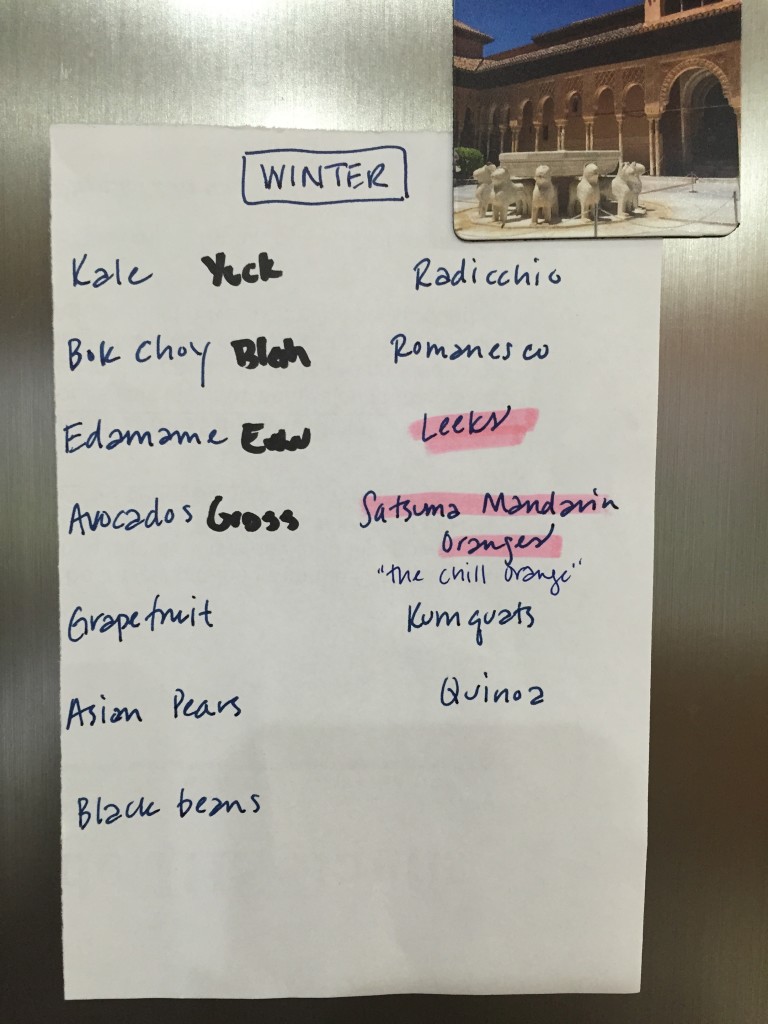 WINTER
Kale Yuck
Bok Choy Blah
Edamame Eww
Avocados Gross
Grapefruit
Asian Pears
Black beans
Radicchio
Romanesco
Leeks
Satsuma Mandarin
Oranges
"the chill orange"
Kumquats
Quinoa